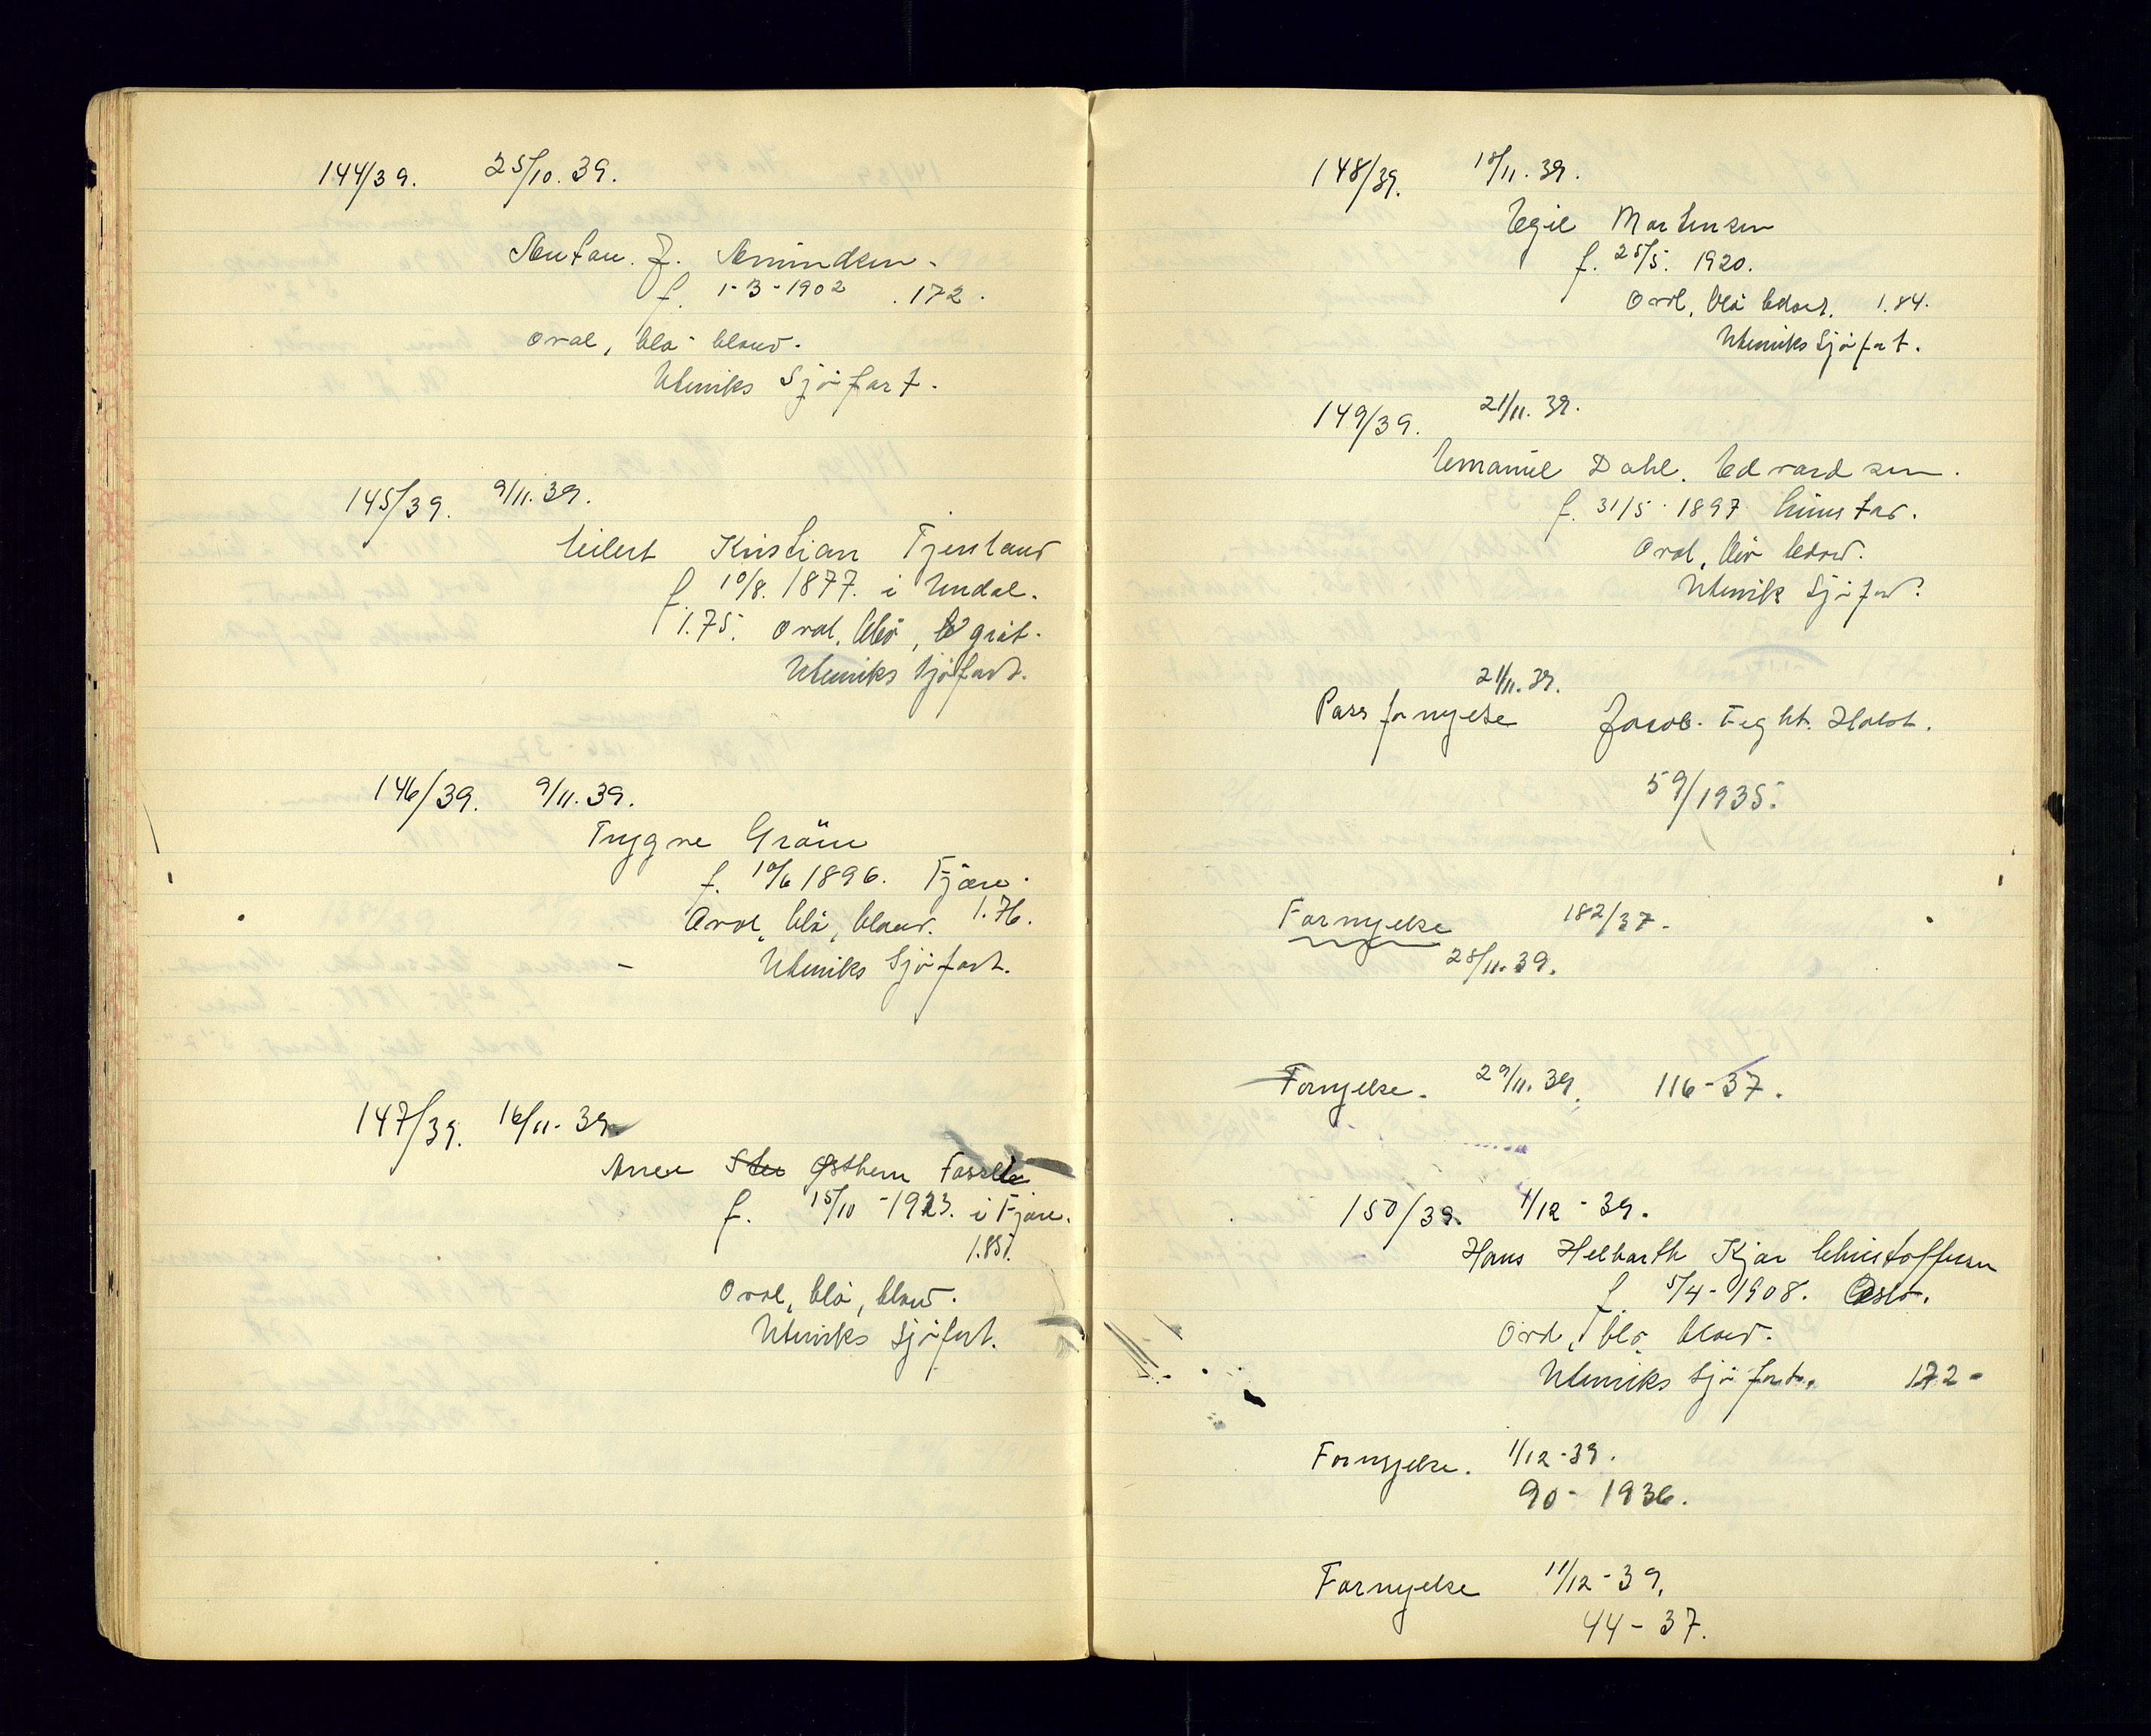 144/39. 25/10. 39.
Anton. J. Amundsen.
f. 1-3-1902 .172.
Oval, blå blond.
Utenriks Sjöfart.
145/39. 9/11. 39.
Eilert Kristian Tjentland
f. 10/8. 1877. i Undal.
1.75. Oval, blå, gråt.
Utenriks Sjöfart.
146/39. 9/11. 39.
Trygve Gröm
f. 10/6 1896. Fjære.
Oval, blå, blond. 1.76.
Utenriks Sjöfart.
147/39. 16/11- 39.
Arne Østhem Fosselie
f. 15/10 -1923. i Fjære.
1.85.
Oval, blå, blond.
Utenriks Sjöfart.
148/39. 18/11. 39.
Egil Martensen
f. 25/5. 1920.
Oval, blå blond. 1.84.
Utenriks Sjöfart.
149/39. 21/11. 39.
Emanuel Dahl. Edvardsen.
f. 31/5. 1897 Grimstad.
Oval, blå blond.
Utenrik Sjöfart.
21/11. 39.
Pass fornyelse Jacob. Feght. Holst.
59/1935.
Fornyelse 182/37.
28/11. 39.
Fornyelse. 29/11. 39. 116-37.
150/39. 1/12 - 39.
Hans Helbarth Kjær Christoffersen
f. 5/4- 1908. Oslo.
Oval, blå, blond.
Utenriks Sjöfart. 172-
Fornyelse. 1/12-39.
90- 1936.
Fornyelse 11/12-39.
44-37.